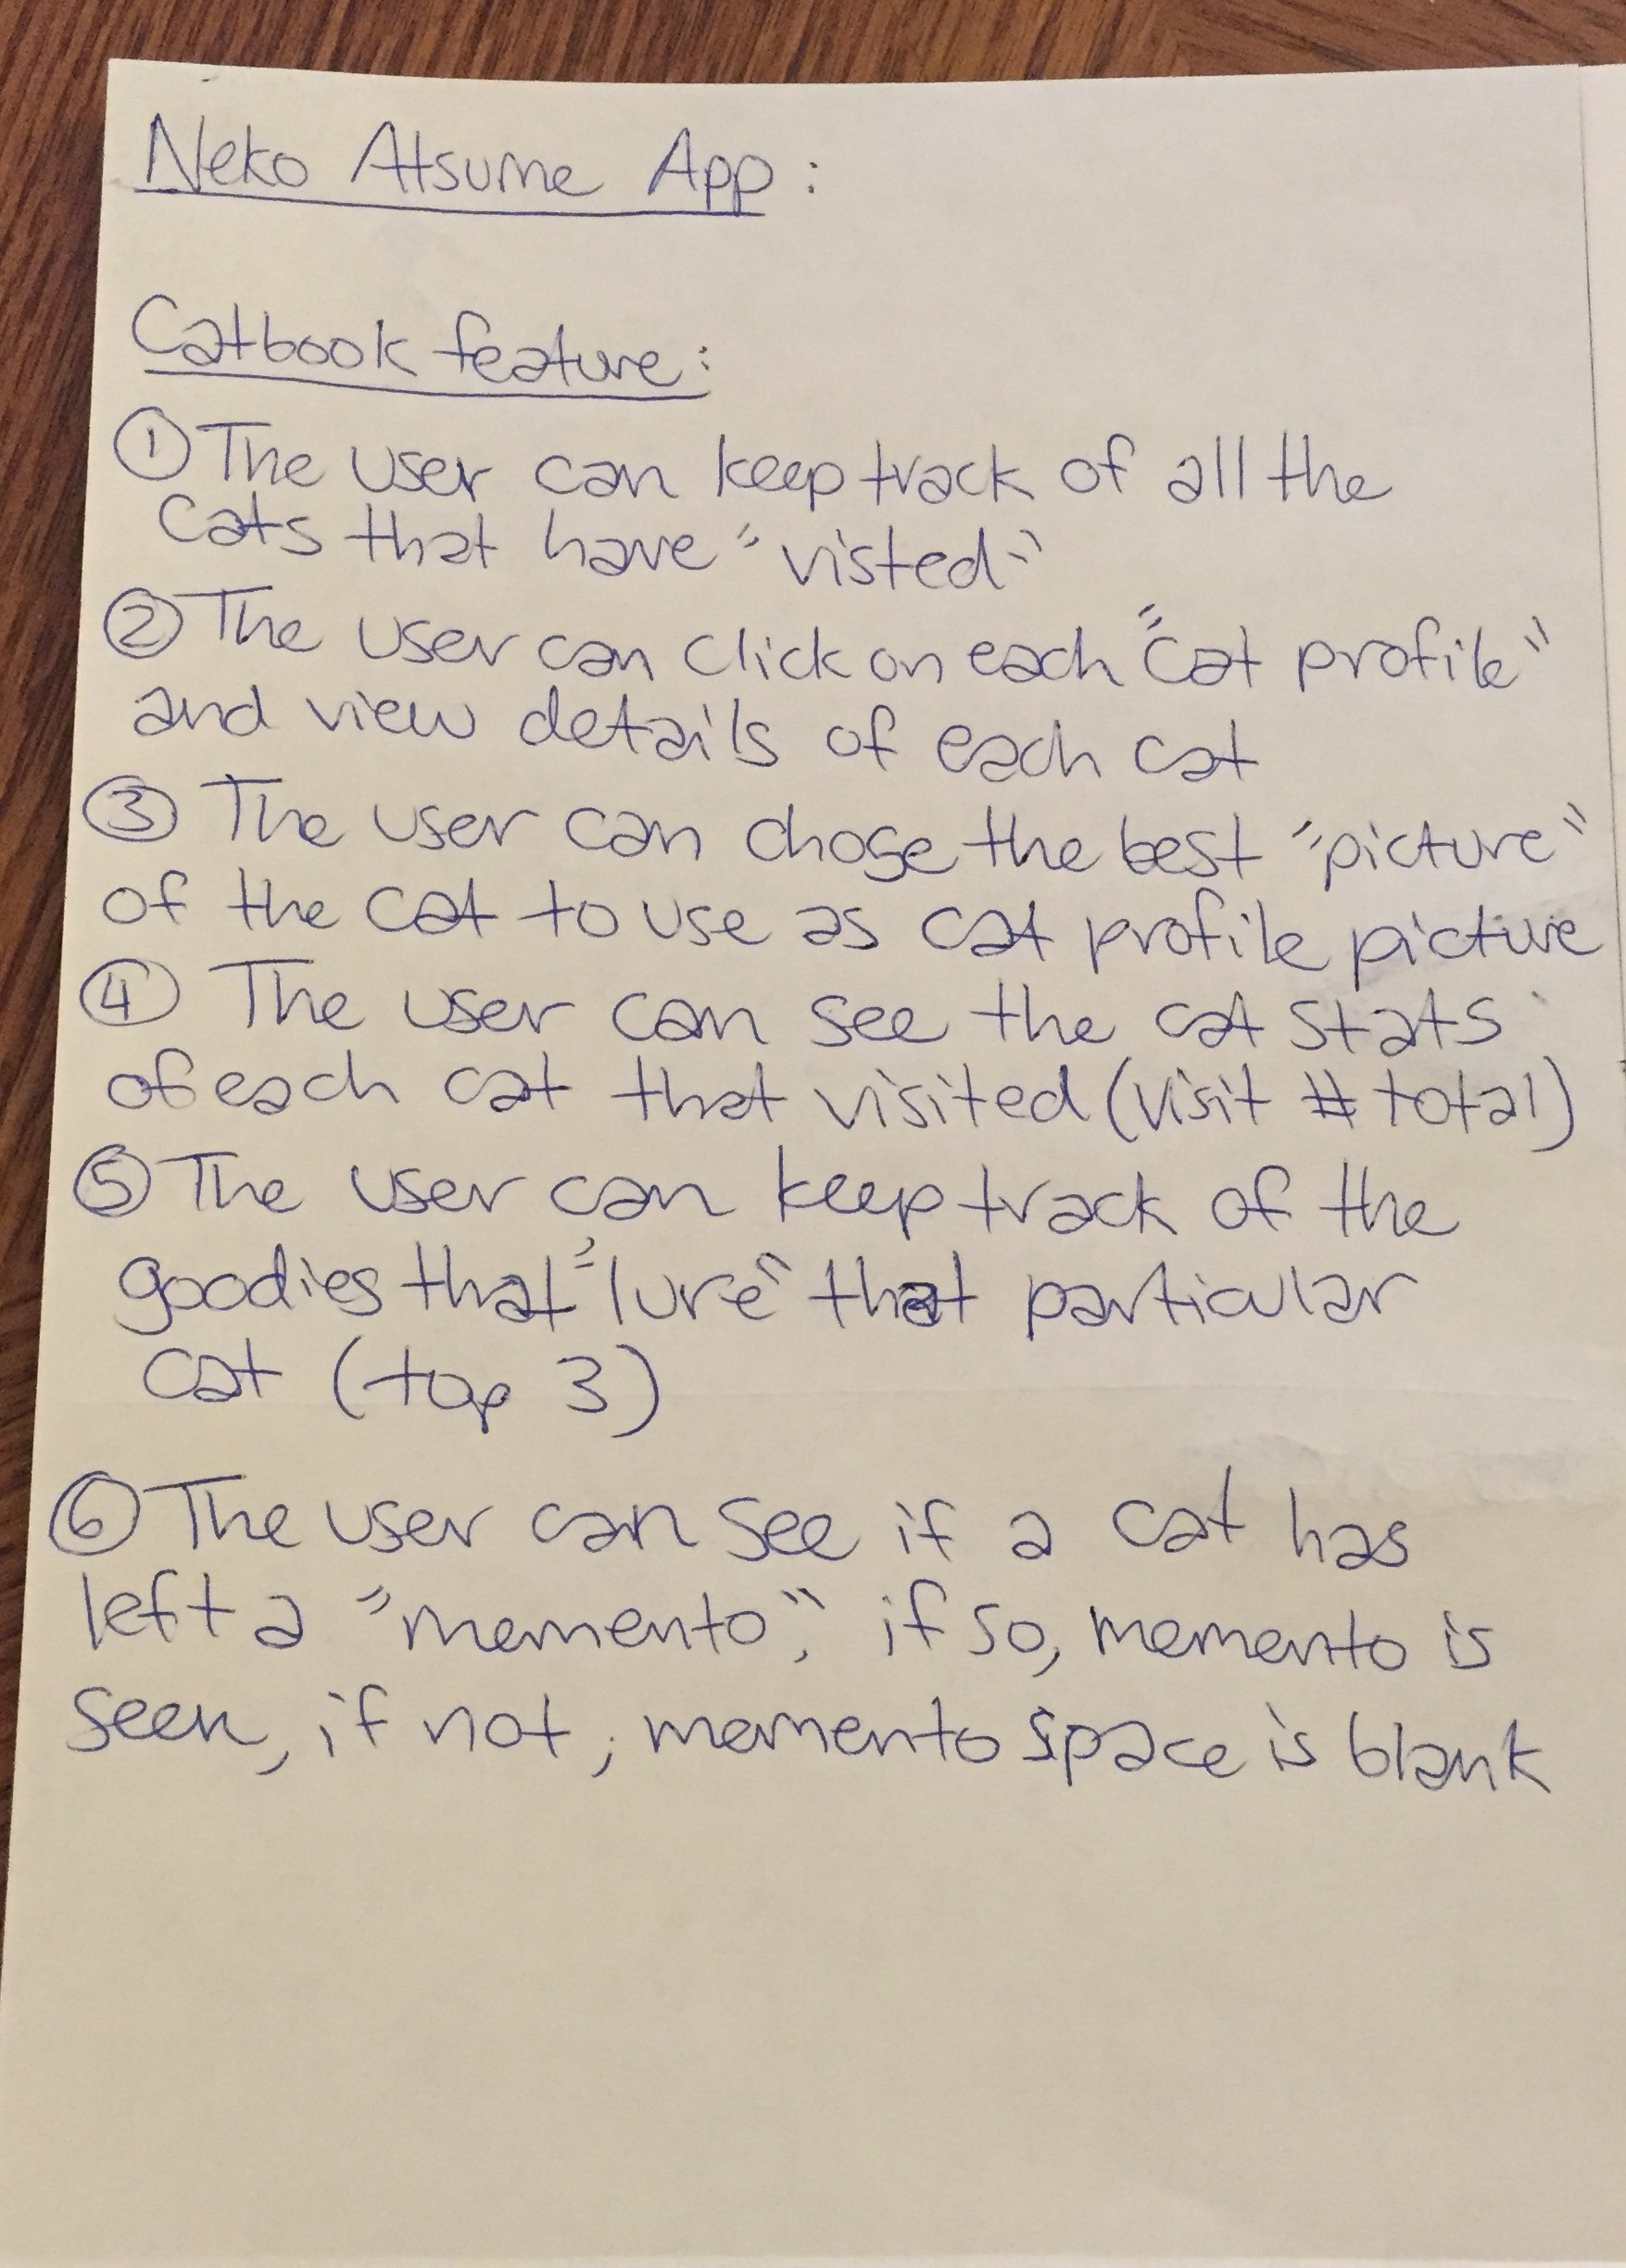 Neko Atsume App:
Catbook feature:
① The user can keep track of all the
cats that have "visted"
② The user can click on each "cat profile"
and view details of each cat
③ The user can chose the best "picture"
of the cat to use as cat profile picture
④ The user can see the cat stats
of each cat that visited (visit # total)
⑤ The user can keep track of the
goodies that "lure" that particular
cat (top 3)
⑥ The user can see if a cat has
left a "memento", if so, memento is
seen, if not, memento space is blank